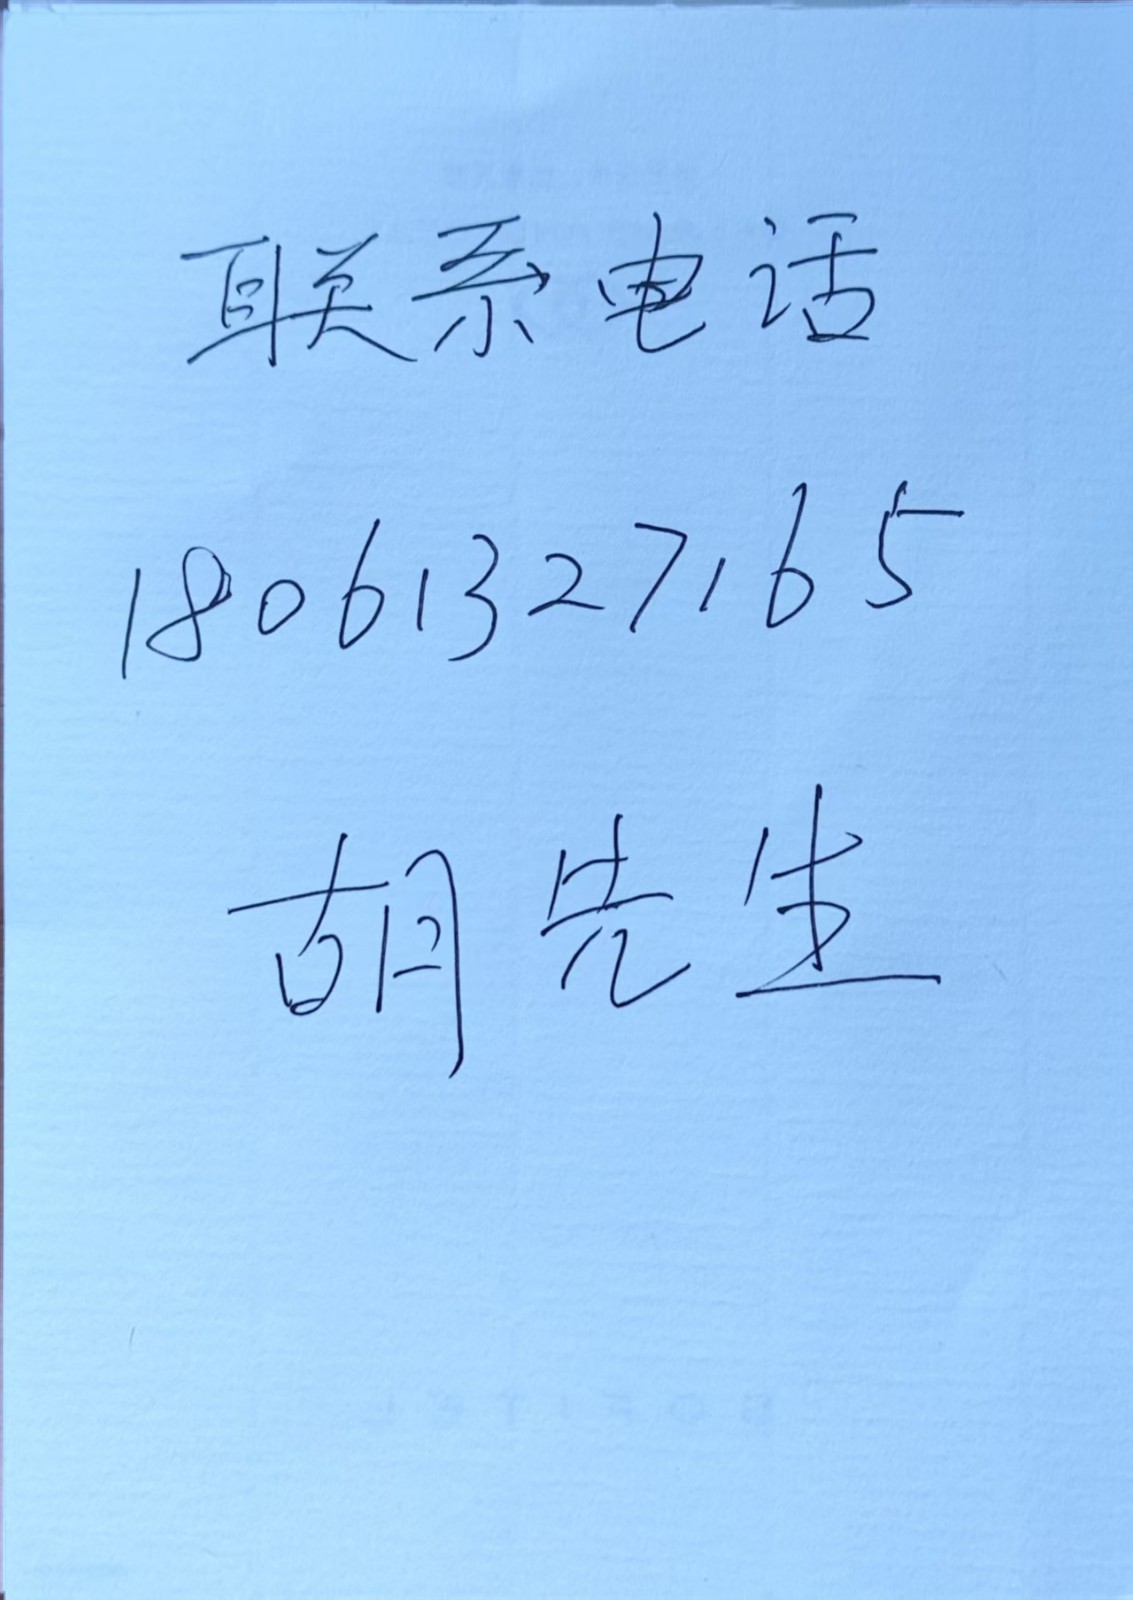 联系电话
18061327165
胡先生